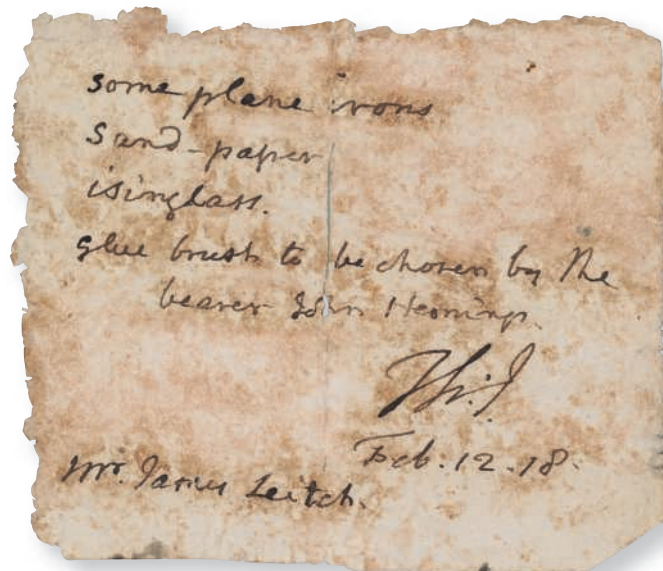 some plane irons
Sand-paper
isinglass.
glue brush to be chosen by the
bearer John Hemings.
Th:J
Feb. 12. 18.
Mr. James Leitch.